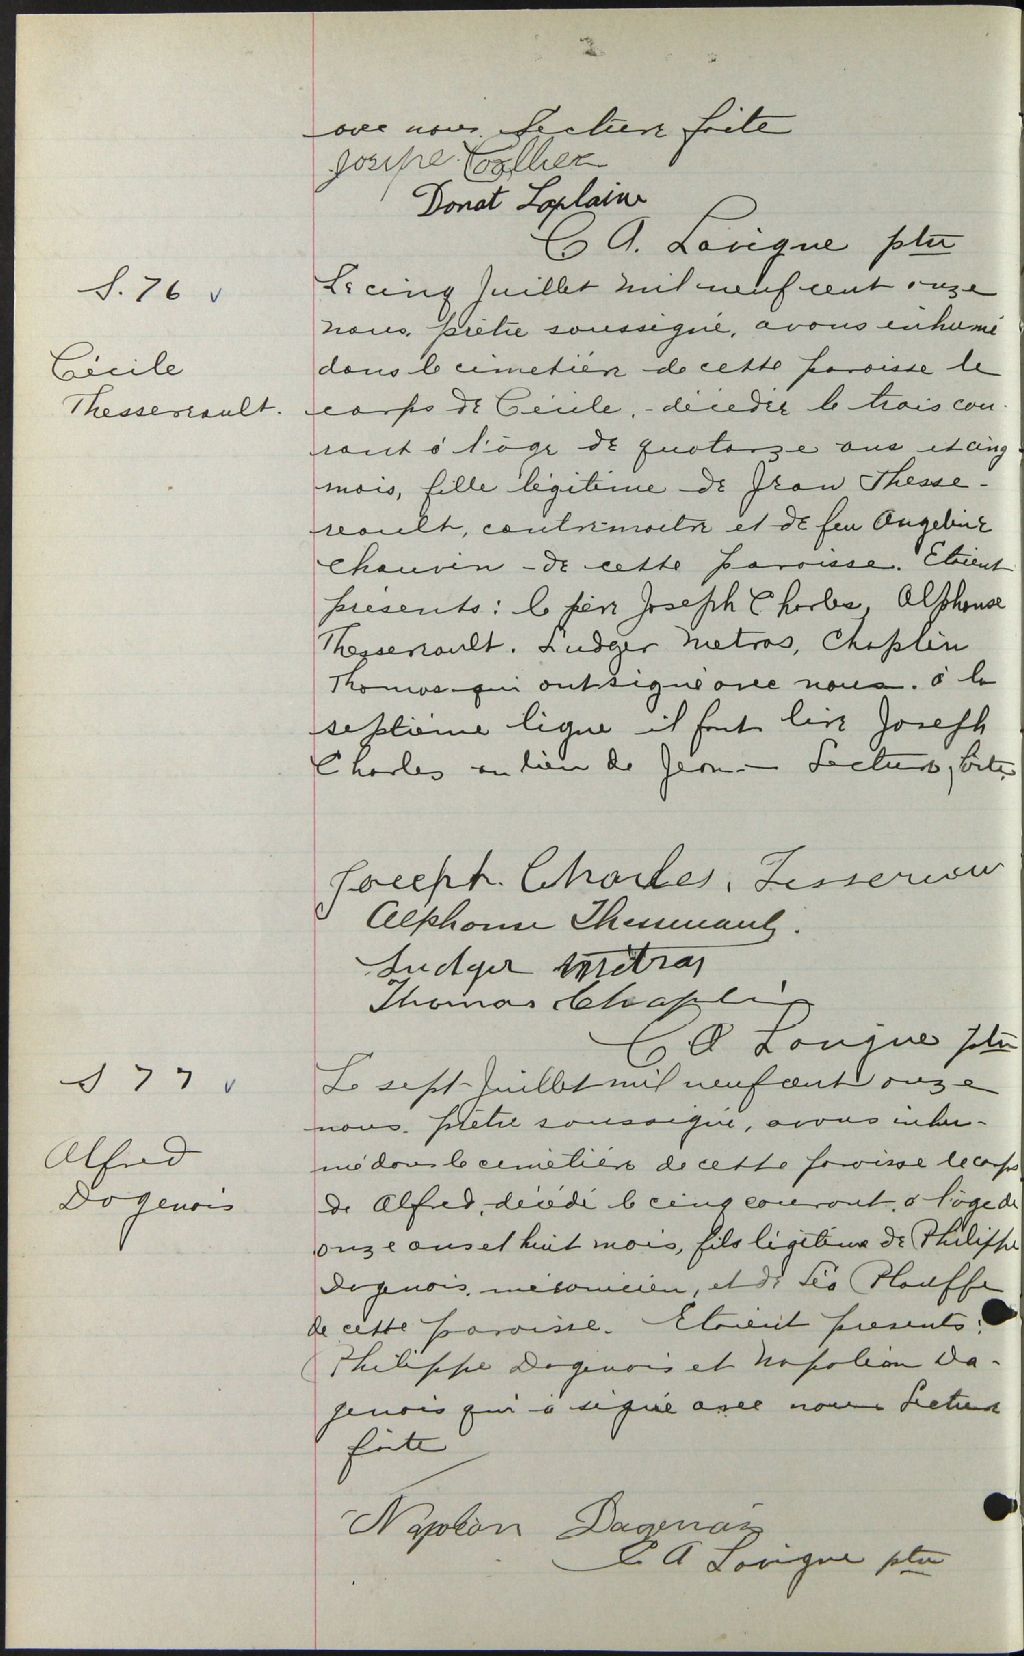 avec nous. Lecture faite
Donat Laplaine
C. A. Lavigne ptre
S. 76 v
Le cinq Juillet mil neuf cent onze
nous, prêtre soussigné, avons inhumé
Cécile
dans le cimetière de cette paroisse le
Thessereault.
corps de Cécile, décédée le trois cou-
rant à l'âge de quatorze ans et cinq
mois, fille légitime de Jean Thesse-
reault, contremaitre et de feu Angeline
Chauvin de cette paroisse. Etaient
présents: le père Joseph Charles, Alphonse
Thessereault. Ludger Metras, Chaplin
Thomas qui ont signé avec nous. à la
septième ligne il faut lire Joseph
Charles au lieu de Jean — Lecture faite.
Joseph. Charles. Tessereau
Alphonse Thessereault.
Ludger Métras
Thomas Chaplin
C A Lavigne ptre
S 77 v
Le sept Juillet mil neuf cent onze
nous. prêtre soussigné, avons inhu-
Alfred
mé dans le cimetière de cette paroisse le corps
Dagenais
de Alfred, décédé le cinq courant, à l'âge de
onze ans et huit mois, fils légitime de Philippe
Dagenais, mécanicien, et de Léa Plouffe
de cette paroisse. Etaient presents:
Philippe Dagenais et Napoléon Da-
genais qui a signé avec nous Lecture
faite
Napoléon Dagenais
C A Lavigne ptre